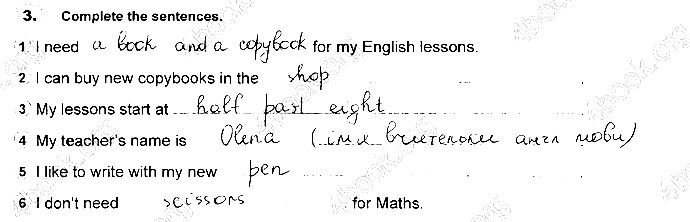 3. Complete the sentences.
1 I need a book and a copybook for my English lessons.
2 I can buy new copybooks in the shop
3 My lessons start at half past eight
4 My teacher's name is Olena (імя вчительки англ мови)
5 I like to write with my new pen
6 I don't need scissors for Maths.